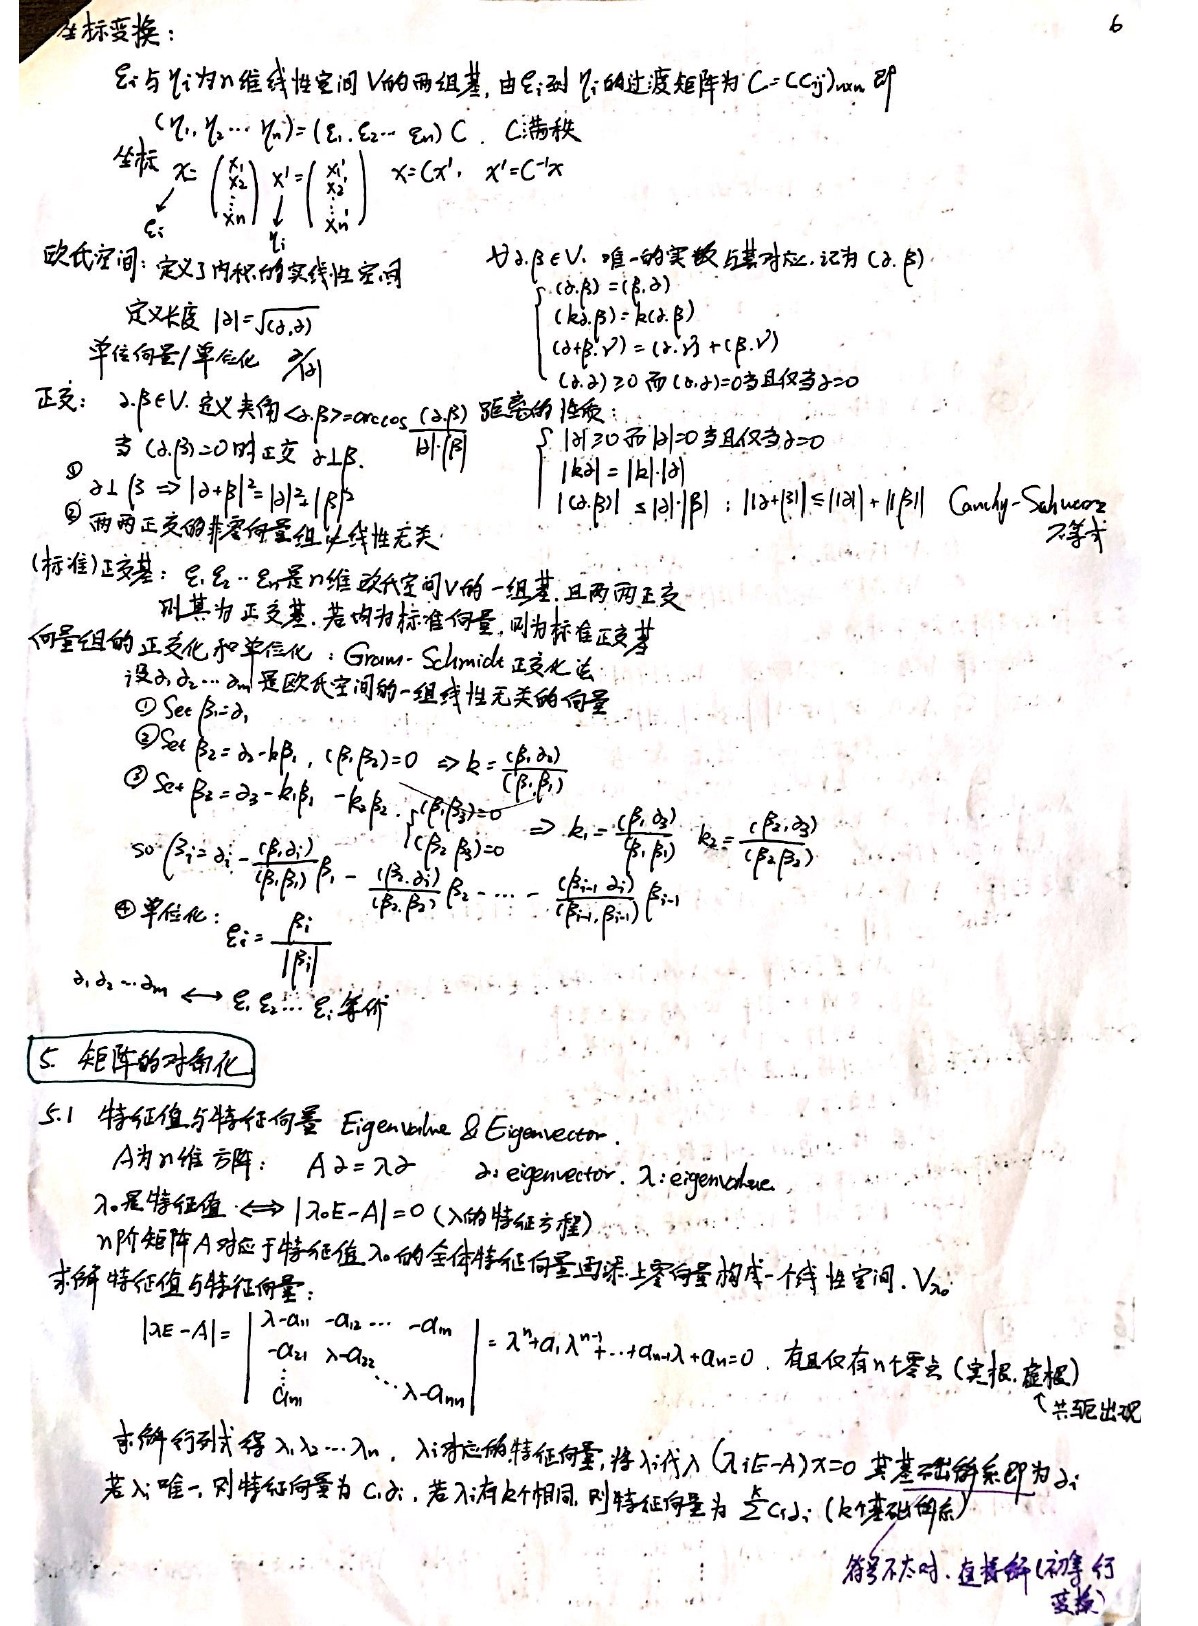 6
坐标变换:
εi与ηi为n维线性空间V的两组基,由εi到ηi的过渡矩阵为C=(Cij)n×n 即
(η1,η2…ηn)=(ε1,ε2…εn)C. C满秩
坐标 x=(x1 x2 ⋮ xn) x'=(x1' x2' ⋮ xn') x=Cx', x'=C⁻¹x
εi ηi
欧氏空间:定义了内积的实线性空间
∀α.β∈V. 唯一的实数与其对应.记为(α.β)
(α.β)=(β.α)
(kα.β)=k(α.β)
(α+β.γ)=(α.γ)+(β.γ)
(α.α)≥0 而(α.α)=0当且仅当α=0
定义长度 |α|=√(α.α)
单位向量/单位化 α/|α|
正交: α.β∈V. 定义夹角<α.β>=arccos (α.β)/|α|·|β|
当(α.β)=0时正交 α⊥β.
① α⊥β ⇒ |α+β|²=|α|²+|β|²
② 两两正交的非零向量组必线性无关
距离的性质:
|α|≥0 而|α|=0当且仅当α=0
|kα|=|k|·|α|
|(α.β)|≤|α|·|β| ; ||α+β||≤||α||+||β|| Cauchy-Schwarz
不等式
(标准)正交基: ε1 ε2…εn是n维欧氏空间V的一组基.且两两正交
则其为正交基.若均为标准向量,则为标准正交基
向量组的正交化和单位化: Gram-Schmidt正交化法
设α1 α2…αm是欧氏空间的一组线性无关的向量
① Set β1=α1
② Set β2=α2-kβ1, (β1 β2)=0 ⇒ k=(β1 α2)/(β1 β1)
③ Set β3=α3-k1β1-k2β2. {(β1 β3)=0 (β2 β3)=0 ⇒ k1=(β1 α3)/(β1 β1) k2=(β2,α3)/(β2 β2)
so βi=αi-(β1 αi)/(β1 β1) β1-(β2.αi)/(β2.β2) β2-…-(βi-1 αi)/(βi-1,βi-1) βi-1
④ 单位化: εi=βi/|βi|
α1 α2…αm ↔ ε1 ε2…εi等价
5. 矩阵的对角化
5.1 特征值与特征向量 Eigenvalue & Eigenvector.
A为n维方阵: Aα=λα α: eigenvector. λ: eigenvalue.
λ0是特征值 ⇔ |λ0E-A|=0 (λ的特征方程)
n阶矩阵A对应于特征值λ0的全体特征向量再添上零向量构成一个线性空间.Vλ0
求解特征值与特征向量:
|λE-A|= | λ-a11 -a12 … -a1n
-a21 λ-a22
⋮ ⋱
a1n λ-ann | =λⁿ+a1λⁿ⁻¹+…+an-1λ+an=0. 有且仅有n个零点(实根.虚根)
↑共轭出现
求解行列式得λ1 λ2…λn. λi对应的特征向量,将λi代入(λiE-A)x=0 其基础解系即为αi
若λi唯一,则特征向量为ciαi.若λi有k个相同,则特征向量为 Σᵏ ciαi (k个基础解系)
符号不太对.直接解(初等行
变换)